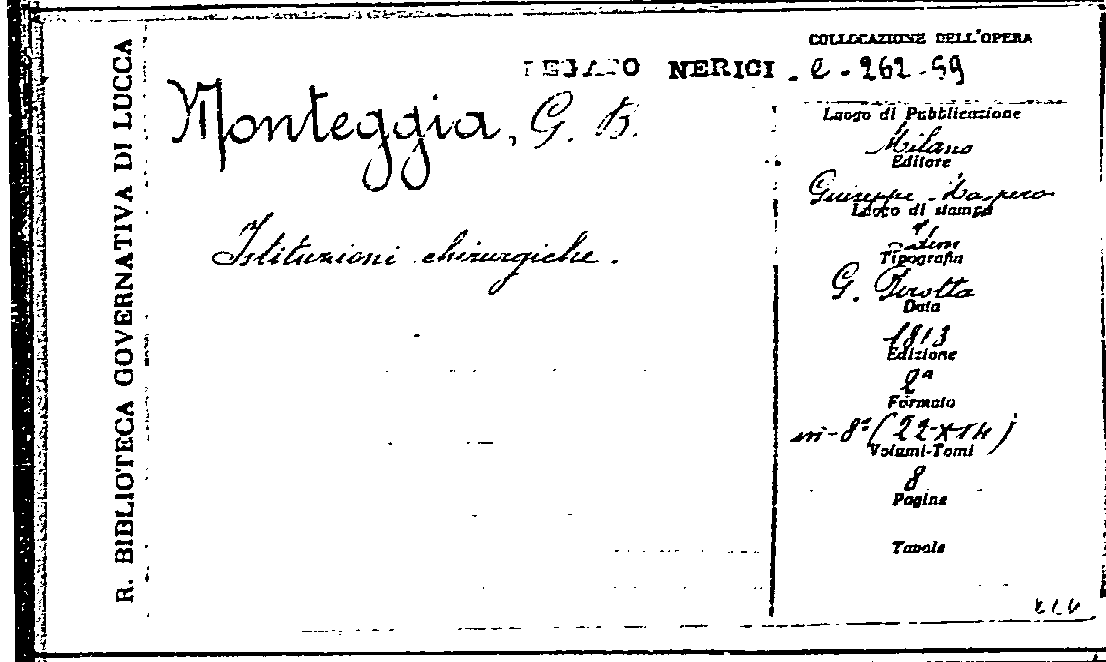 R. BIBLIOTECA GOVERNATIVA DI LUCCA
COLLOCAZIONE DELL'OPERA
LEGATO NERICI . C - 262 - 59
Monteggia, G. B.
Istituzioni chirurgiche.
Luogo di Pubblicazione
Milano
Editore
Giuseppe Maspero
Luogo di stampa
Tipografia
G. Pirotta
Data
1813
Edizione
2ª
Formato
in-8º (22×14)
Volumi-Tomi
8
Pagine
Tavole